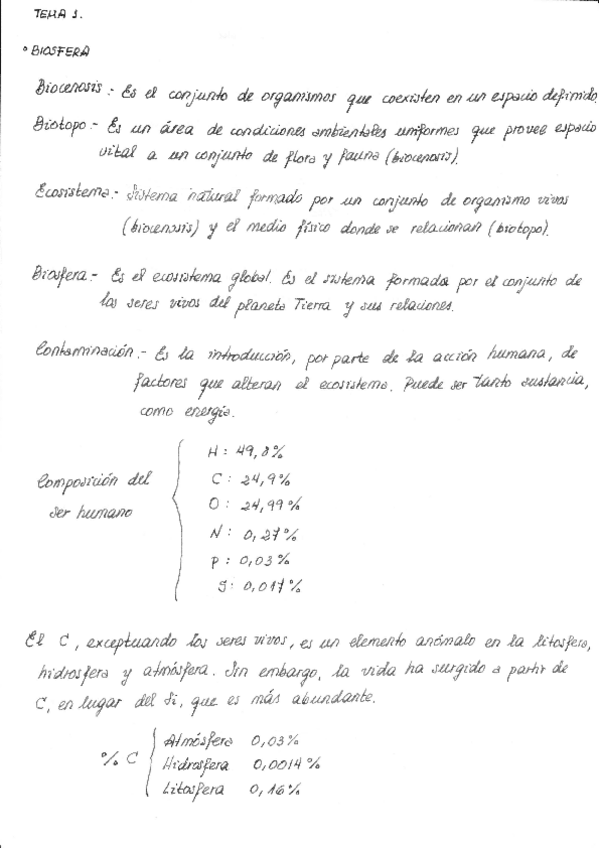 TEMA 1.
° BIOSFERA
Biocenosis.- Es el conjunto de organismos que coexisten en un espacio definido.
Biotopo.- Es un área de condiciones ambientales uniformes que provee espacio
vital a un conjunto de flora y fauna (biocenosis).
Ecosistema.- Sistema natural formado por un conjunto de organismo vivos
(biocenosis) y el medio físico donde se relacionan (biotopo).
Biosfera.- Es el ecosistema global. Es el sistema formada por el conjunto de
los seres vivos del planeta Tierra y sus relaciones.
Contaminación.- Es la introducción, por parte de la acción humana, de
factores que alteran el ecosistema. Puede ser tanto sustancia,
como energía.
Composición del
ser humano
H: 49,8%
C: 24,9%
O: 24,99%
N: 0,27%
P: 0,03%
S: 0,017%
El C, exceptuando los seres vivos, es un elemento anómalo en la litosfera,
hidrosfera y atmósfera. Sin embargo, la vida ha surgido a partir de
C, en lugar del Si, que es más abundante.
% C
Atmósfera 0,03%
Hidrosfera 0,0014%
Litosfera 0,16%